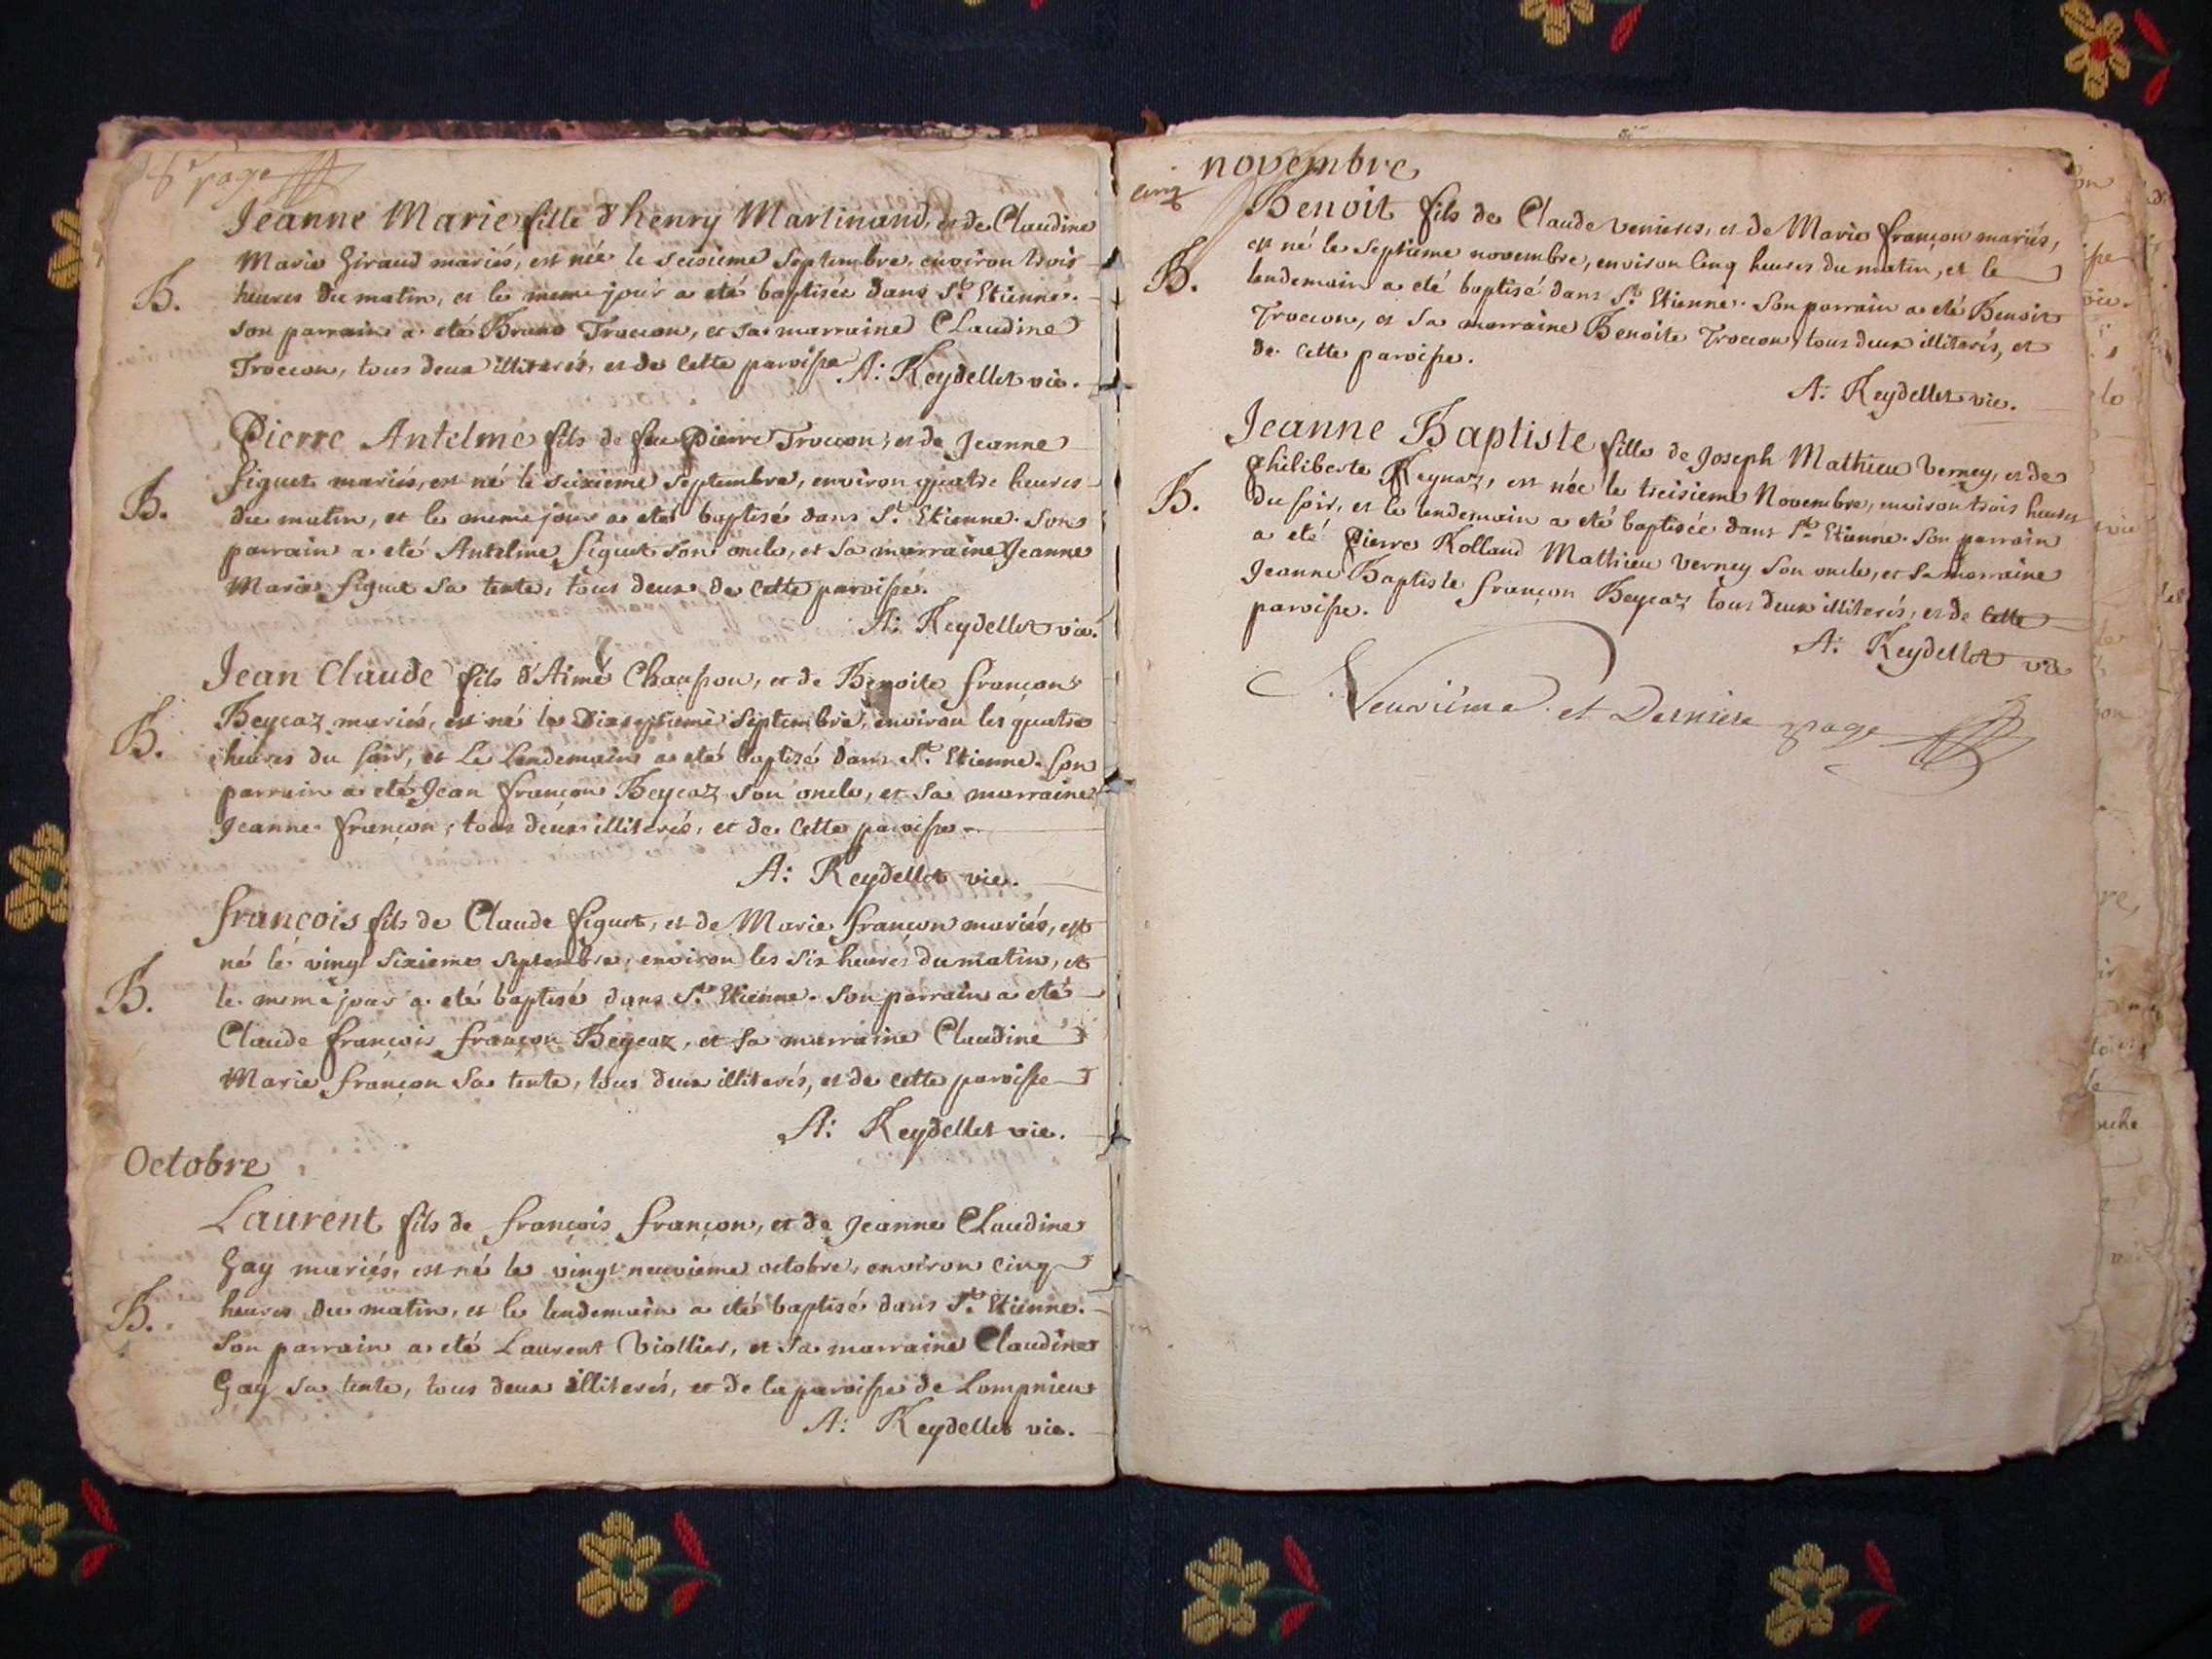 8e page
Jeanne Marie fille d'henry Martinand, et de Claudine
Marie Giraud mariés, est née le seisieme Septembre, environ trois
B. heures du matin, et le meme jour a eté baptisée dans St. Etienne.
son parrain a eté Bruno Troccon, et sa marraine Claudine
Troccon, tous deux illiterés, et de cette paroisse A: Reydellet vic.
Pierre Antelme fils de feu Pierre Troccon, et de Jeanne
figuet mariés, est né le seixieme Septembre, environ quatre heures
B. du matin, et le meme jour a eté baptisé dans St. Etienne. Son
parrain a eté Antelme figuet son oncle, et sa marraine Jeanne
Marie figuet sa tente, tous deux de cette paroisse.
A: Reydellet vic.
Jean Claude fils d'Aimé Chapon, et de Benoite françon
Beycaz mariés, est né le Dixseptieme Septembre, environ les quatre
B. heures du soir, et le lendemain a eté baptisé dans St. Etienne. son
parrain a eté Jean françon Beycaz son oncle, et sa marraine
Jeanne françon, tous deux illiterés, et de cette paroisse
A: Reydellet vic.
françois fils de Claude figuet, et de Marie françon mariés, est
né le vingt sixieme Septembre, environ les six heures du matin, et
B. le meme jour a eté baptisé dans St. Etienne. Son parrain a eté
Claude françois françon Beycaz, et sa marraine Claudine
Marie françon sa tente, tous deux illiterés, et de cette paroisse
A: Reydellet vic.
Octobre
Laurent fils de françois françon, et de Jeanne Claudine
Gay mariés, est né le vingt neuvieme octobre, environ cinq
B. heures du matin, et le lendemain a eté baptisé dans St. Etienne.
Son parrain a eté Laurent Viollier, et sa marraine Claudine
Gay sa tente, tous deux illiterés, et de la paroisse de Lompnieu
A: Reydellet vic.
novembre
cinq
Benoit fils de Claude Venieres, et de Marie françon mariés,
est né le Septieme novembre, environ Cinq heures du matin, et le
B. lendemain a eté baptisé dans St. Etienne. Son parrain a eté Benoit
Troccon, et sa marraine Benoite Troccon, tous deux illiterés, et
de cette paroisse.
A: Reydellet vic.
Jeanne Baptiste fille de Joseph Mathieu Verney, et de
philiberte Reynaz, est née le treisieme Novembre, environ trois heures
B. du soir, et le lendemain a eté baptisée dans St. Etienne. Son parrain
a eté Pierre Rolland Mathieu Verney son oncle, et sa marraine
Jeanne Baptiste françon Beycaz tous deux illiterés, et de cette
paroisse.
A: Reydellet vic
Neuvième et Derniere page